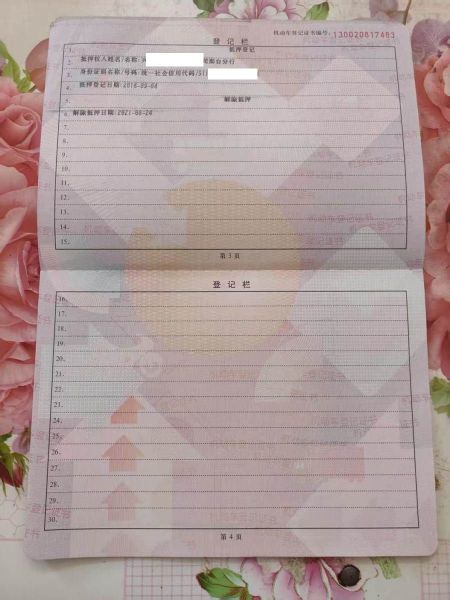 登记栏
机动车登记证书编号：130020817483
1. 抵押登记
2. 抵押权人姓名/名称：
台分行
3. 身份证明名称/号码：统一社会信用代码/911
4. 抵押登记日期：2018-09-04
5. 解除抵押
6. 解除抵押日期：2021-08-24
7.
8.
9.
10.
11.
12.
13.
14.
15.
第 3 页
登记栏
16.
17.
18.
19.
20.
21.
22.
23.
24.
25.
26.
27.
28.
29.
30.
第 4 页